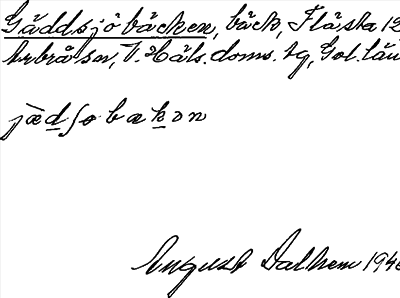 Gäddsjöbäcken, bäck, Flästa 12
krbråsn, V. Häls. doms. tg, Gol. län
jæ̀dʃøbækən
August Dalhem 194